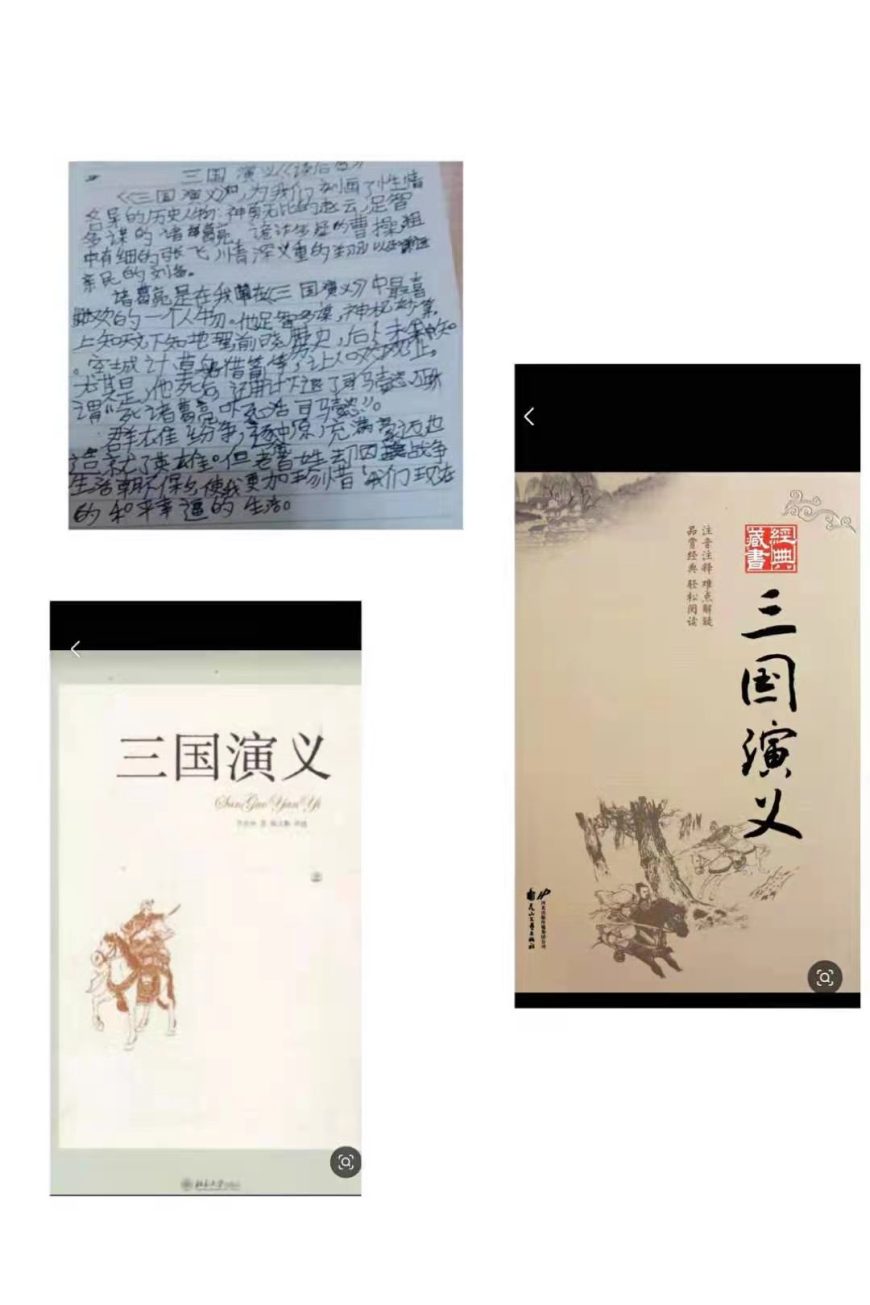 三国 演义《读后感》
《三国演义》,为我们刻画了性情
各异的历史人物:神勇无比的赵云,足智
多谋的诸葛亮,诡计生疑的曹操,粗
中有细的张飞,情深义重的以
亲民的刘备。
诸葛亮是在我在《三国演义》中最喜
欢的一个人物。他足智多谋,神机妙算,
上知天文下知地理前晓历史,后
。空城计草船借箭等,让人
尤其是,他死后,还用计退了司马懿,
谓“死诸葛亮吓死活司马懿”。
群雄纷争,逐中原,充满
造就了英雄。但老百姓却因战争
生活朝不保夕,使我更加珍惜,我们现在
的和平幸福的生活。
经典
藏书
注音注释 难点解疑
品赏经典 轻松阅读
三国演义
花山文艺出版社
三国演义
San Guo Yan Yi
上
北京大学出版社